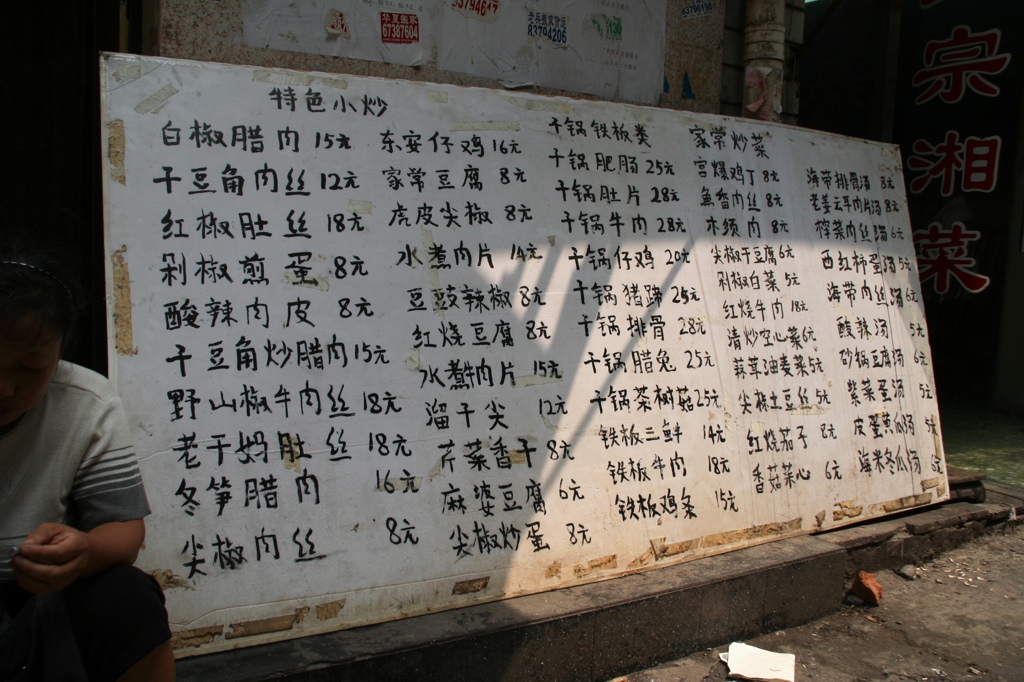 特色小炒
白椒腊肉 15元
干豆角肉丝 12元
红椒肚丝 18元
剁椒煎蛋 8元
酸辣肉皮 8元
干豆角炒腊肉 15元
野山椒牛肉丝 18元
老干妈肚丝 18元
冬笋腊肉 16元
尖椒肉丝 8元
东安仔鸡 16元
家常豆腐 8元
虎皮尖椒 8元
水煮肉片 14元
豆豉辣椒 8元
红烧豆腐 8元
水煮牛肉片 15元
溜干尖 12元
芹菜香干 8元
麻婆豆腐 6元
尖椒炒蛋 8元
干锅铁板类
干锅肥肠 25元
干锅肚片 28元
干锅牛肉 28元
干锅仔鸡 20元
干锅猪蹄 25元
干锅排骨 28元
干锅腊兔 25元
干锅茶树菇 25元
铁板三鲜 14元
铁板牛肉 18元
铁板鸡条 15元
家常炒菜
宫爆鸡丁 8元
鱼香肉丝 8元
木须肉 8元
尖椒干豆腐 6元
剁椒白菜 5元
红烧牛肉 18元
清炒空心菜 6元
蒜茸油麦菜 5元
尖椒土豆丝 5元
红烧茄子 8元
香菇菜心 6元
海带排骨汤 8元
老姜云耳肉片汤 8元
榨菜肉丝汤 6元
西红柿蛋汤 5元
海带肉丝汤 6元
酸辣汤 5元
砂锅豆腐汤 6元
紫菜蛋汤 5元
皮蛋黄瓜汤 5元
海米冬瓜汤 6元
宗湘菜
67387604
63794647
83794206